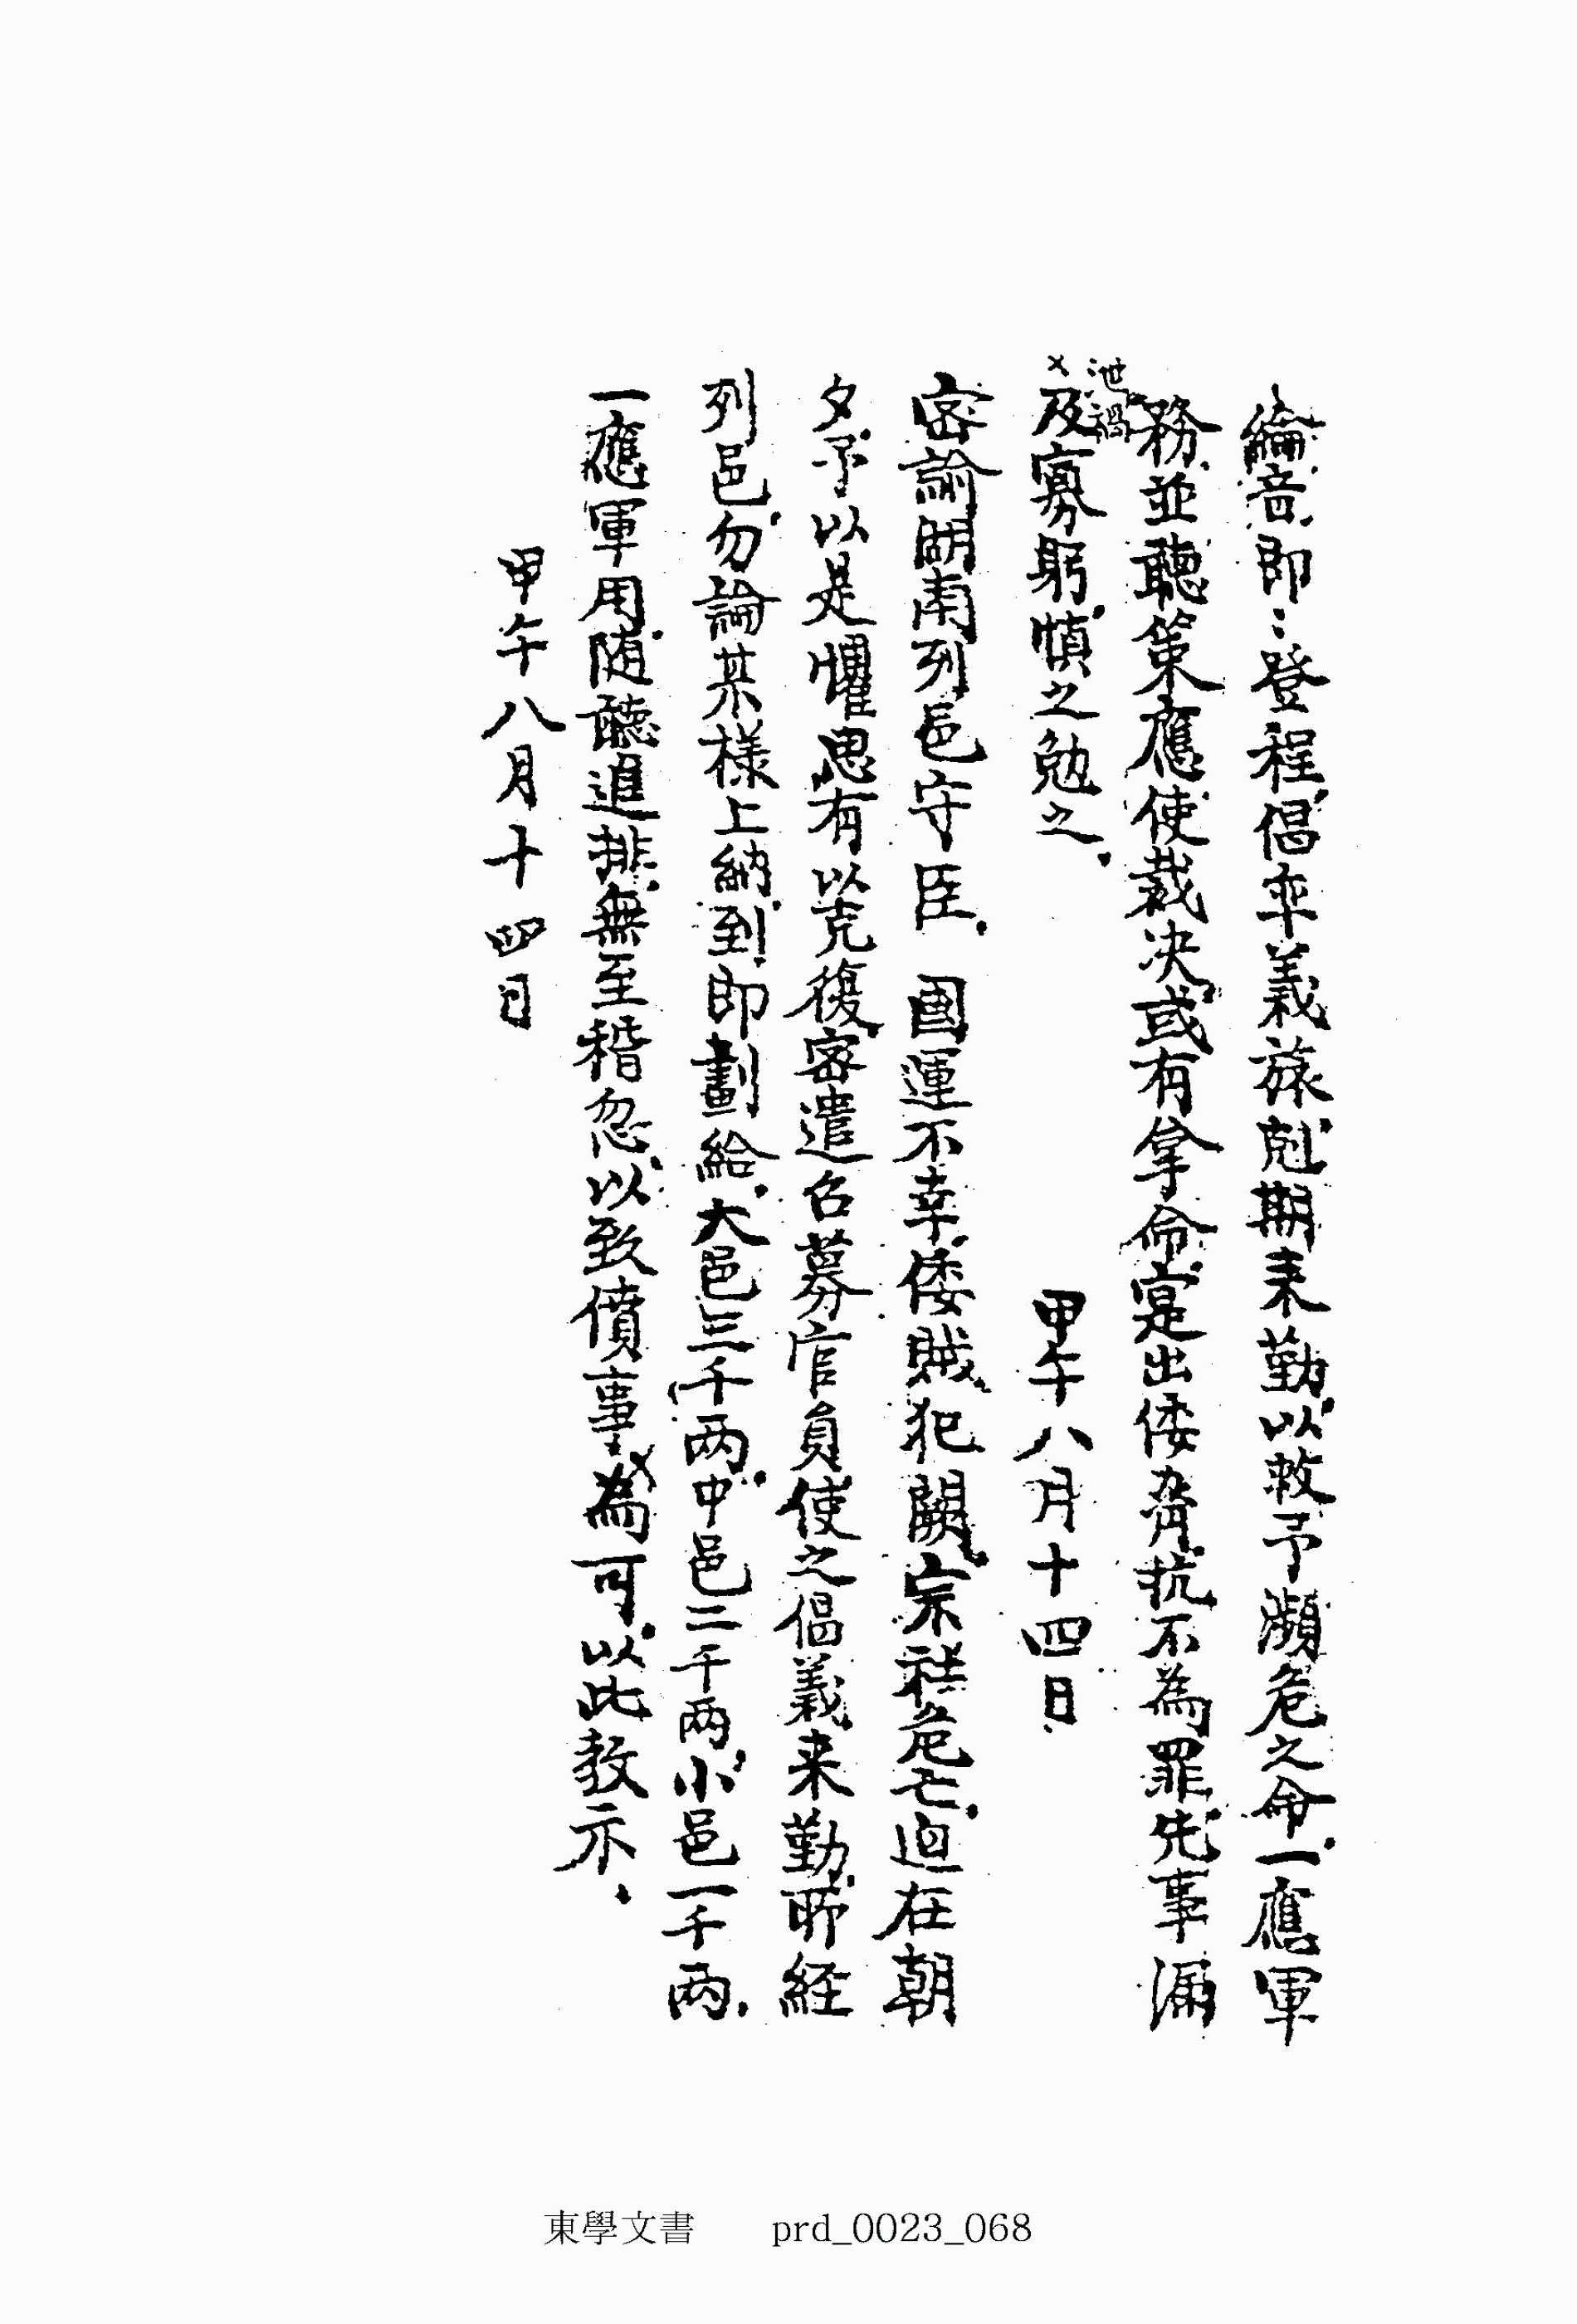 綸音即〻登程倡率義旅剋期来勤以救予瀕危之命一應軍
務並聽策應使裁决或有拿命寔出倭脅抗不為罪先事漏
泄禍
及寡躬慎之勉之 甲午八月十四日
密諭湖南列邑守臣 國運不幸倭賊犯闕宗社危亡迫在朝
夕予以是懼思有以克復密遣召募官員使之倡義来勤所経
列邑勿論某樣上納到即劃給大邑三千两中邑二千两小邑一千两
一應軍用随聽進排無至稽忽以致僨事為可以此教示
甲午八月十四日
東學文書 prd_0023_068